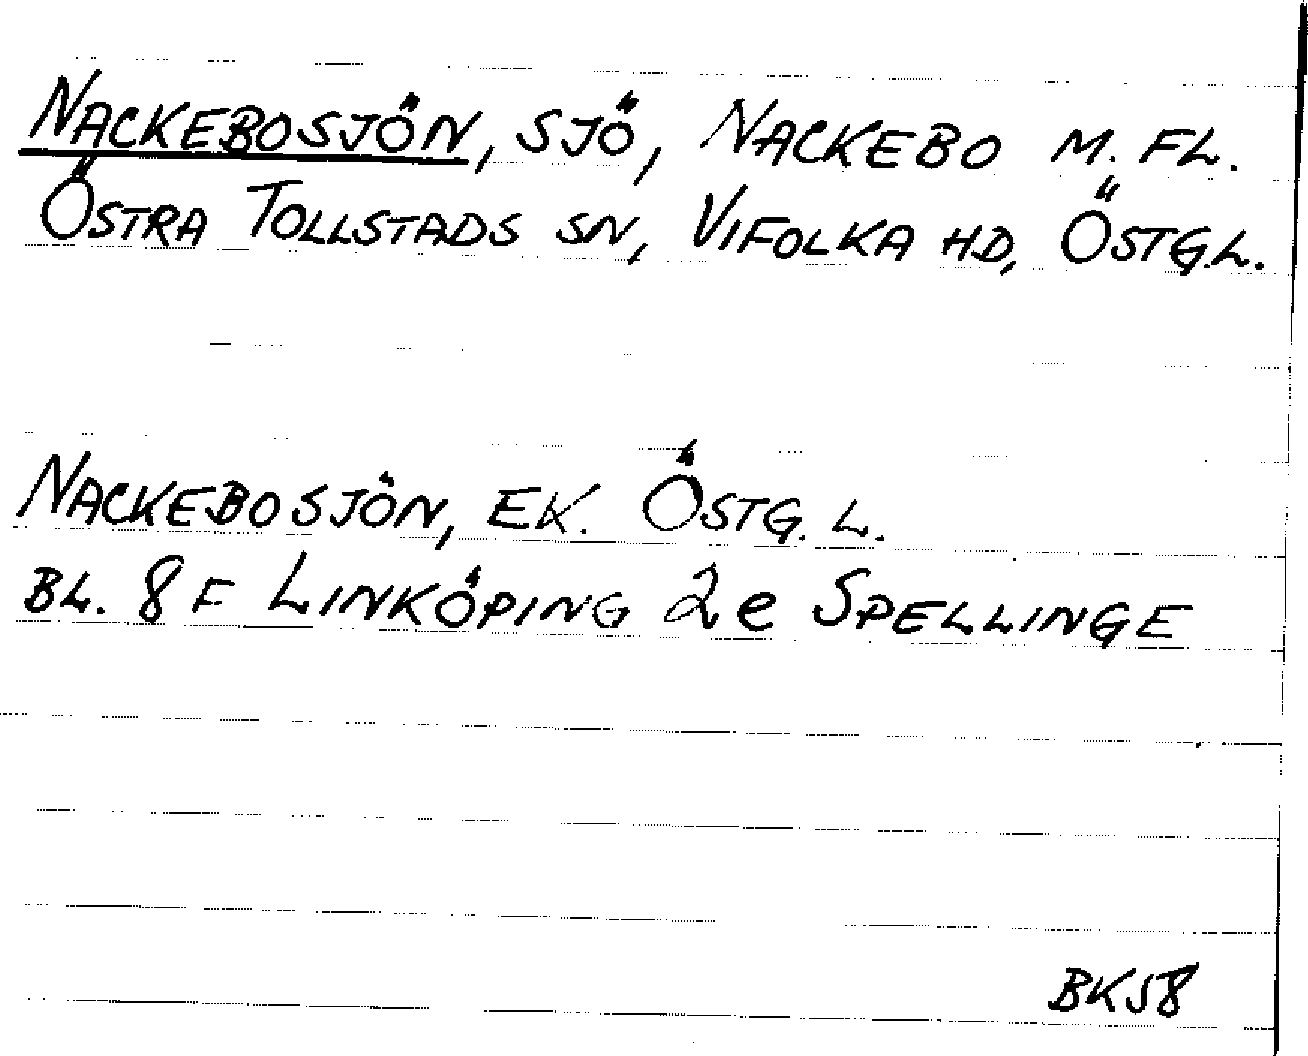 NACKEBOSJÖN, SJÖ, NACKEBO M. FL.
ÖSTRA TOLLSTADS SN, VIFOLKA HD, ÖSTG.L.
NACKEBOSJÖN, EK. ÖSTG. L.
BL. 8 F LINKÖPING 2e SPELLINGE
BK58